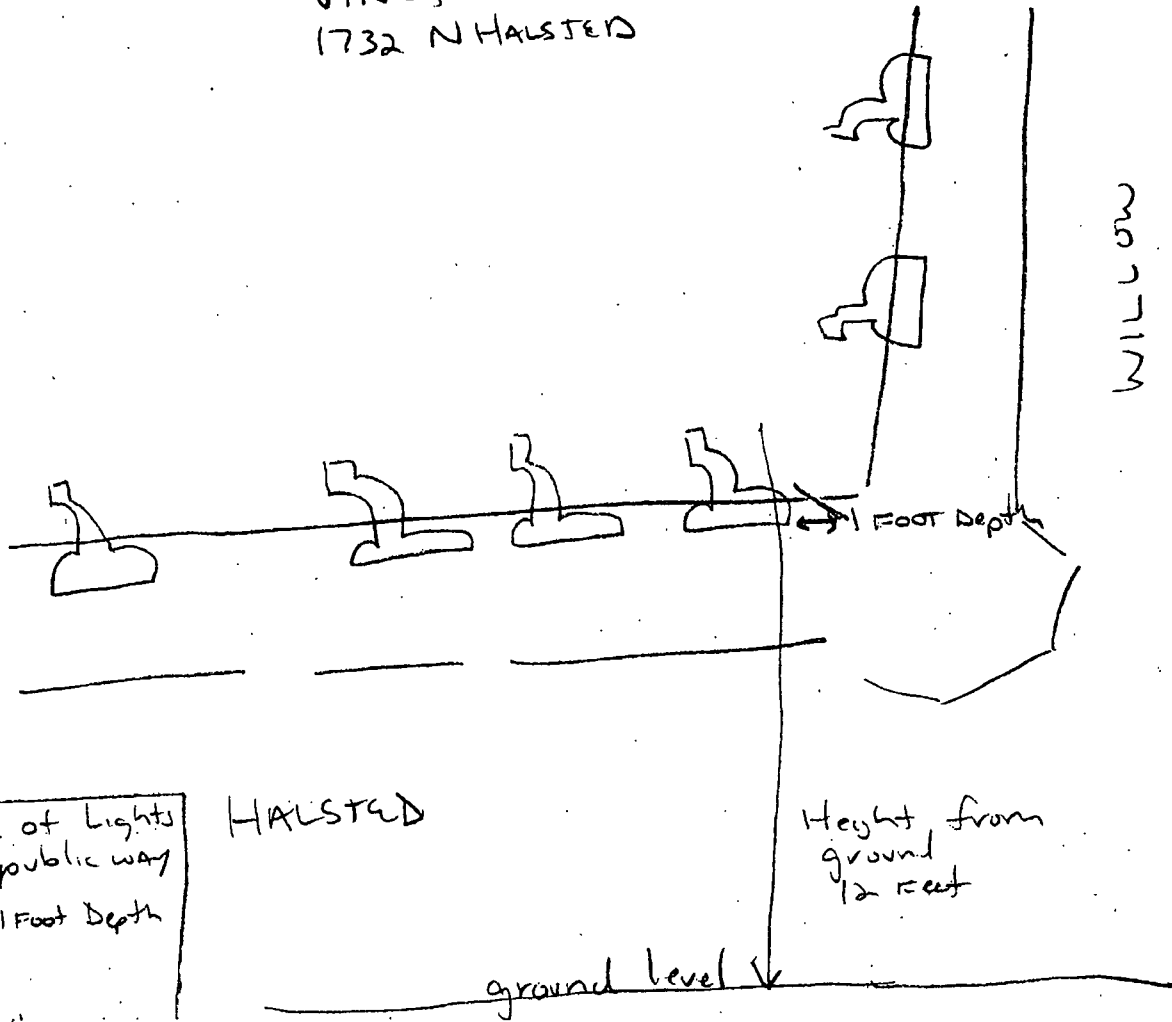 1732 N HALSTED
WILLOW
1 FOOT Depth
of Lights
public way
1 Foot Depth
HALSTED
Height from
ground
12 Feet
ground level